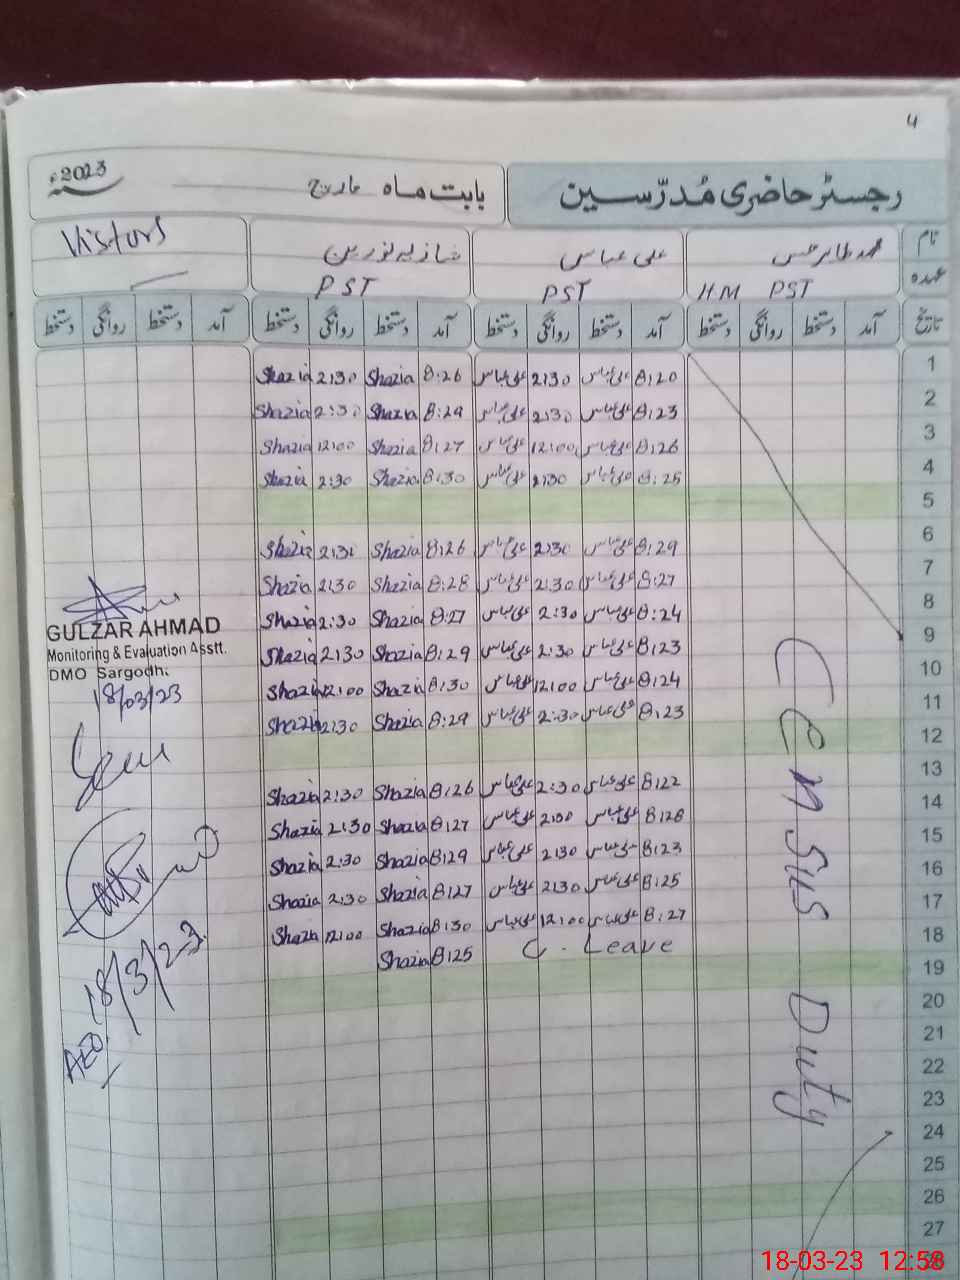 4
رجسٹر حاضری مُدرّسین
بابت ماہ مارچ ۲۰۲3ء
نام محمد طاہر علی عباس شازیہ نورین Visitors
عہدہ H.M PST PST PST
تاریخ آمد دستخط روانگی دستخط آمد دستخط روانگی دستخط آمد دستخط روانگی دستخط آمد دستخط روانگی دستخط
1 8:20 علی عباس 2:30 علی عباس 8:26 Shazia 2:30 Shazia
2 8:23 علی عباس 2:30 علی عباس 8:29 Shazia 2:30 Shazia
3 8:26 علی عباس 12:00 علی عباس 8:27 Shazia 12:00 Shazia
4 8:25 علی عباس 2:30 علی عباس 8:30 Shazia 2:30 Shazia
5
6 8:29 علی عباس 2:30 علی عباس 8:26 Shazia 2:30 Shazia
7 8:27 علی عباس 2:30 علی عباس 8:28 Shazia 2:30 Shazia
8 8:24 علی عباس 2:30 علی عباس 8:27 Shazia 2:30 Shazia
9 8:23 علی عباس 2:30 علی عباس 8:29 Shazia 2:30 Shazia
10 8:24 علی عباس 12:00 علی عباس 8:30 Shazia 12:00 Shazia
11 8:23 علی عباس 2:30 علی عباس 8:29 Shazia 2:30 Shazia
12
13 8:22 علی عباس 2:30 علی عباس 8:26 Shazia 2:30 Shazia
14 8:28 علی عباس 2:30 علی عباس 8:27 Shazia 2:30 Shazia
15 8:23 علی عباس 2:30 علی عباس 8:29 Shazia 2:30 Shazia
16 8:25 علی عباس 2:30 علی عباس 8:27 Shazia 2:30 Shazia
17 8:27 علی عباس 12:00 علی عباس 8:30 Shazia 12:00 Shazia
18 C. Leave 8:25 Shazia
19
20
21
22
23
24
25
26
27
Census Duty
GULZAR AHMAD
Monitoring & Evaluation Asstt.
DMO Sargodha
18/03/23
AEO 18/3/23
18-03-23 12:58